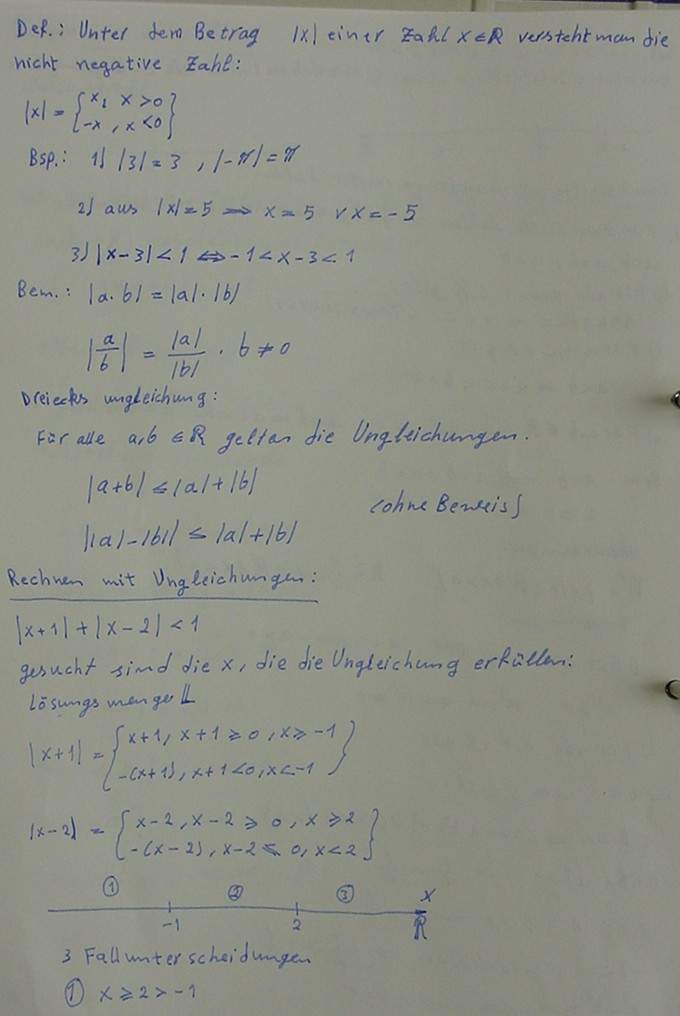 Def.: Unter dem Betrag |x| einer Zahl x∈ℝ versteht man die
nicht negative Zahl:
|x| = { x, x > 0
-x, x < 0 }
Bsp.: 1) |3| = 3 , |-π| = π
2) aus |x| = 5 ⟹ x = 5 ∨ x = -5
3) |x-3| < 1 ⟺ -1 < x-3 < 1
Bem.: |a·b| = |a|·|b|
|a/b| = |a|/|b| · b ≠ 0
Dreiecksungleichung:
Für alle a,b ∈ ℝ gelten die Ungleichungen.
|a+b| ≤ |a|+|b|
(ohne Beweis)
||a|-|b|| ≤ |a|+|b|
Rechnen mit Ungleichungen:
|x+1| + |x-2| < 1
gesucht sind die x, die die Ungleichung erfüllen:
Lösungsmenge 𝕃
|x+1| = { x+1, x+1 ≥ 0, x ≥ -1
-(x+1), x+1 < 0, x < -1 }
|x-2| = { x-2, x-2 ≥ 0, x ≥ 2
-(x-2), x-2 ≤ 0, x < 2 }
① ② ③ x
-1 2 ℝ
3 Fallunterscheidungen
① x ≥ 2 > -1